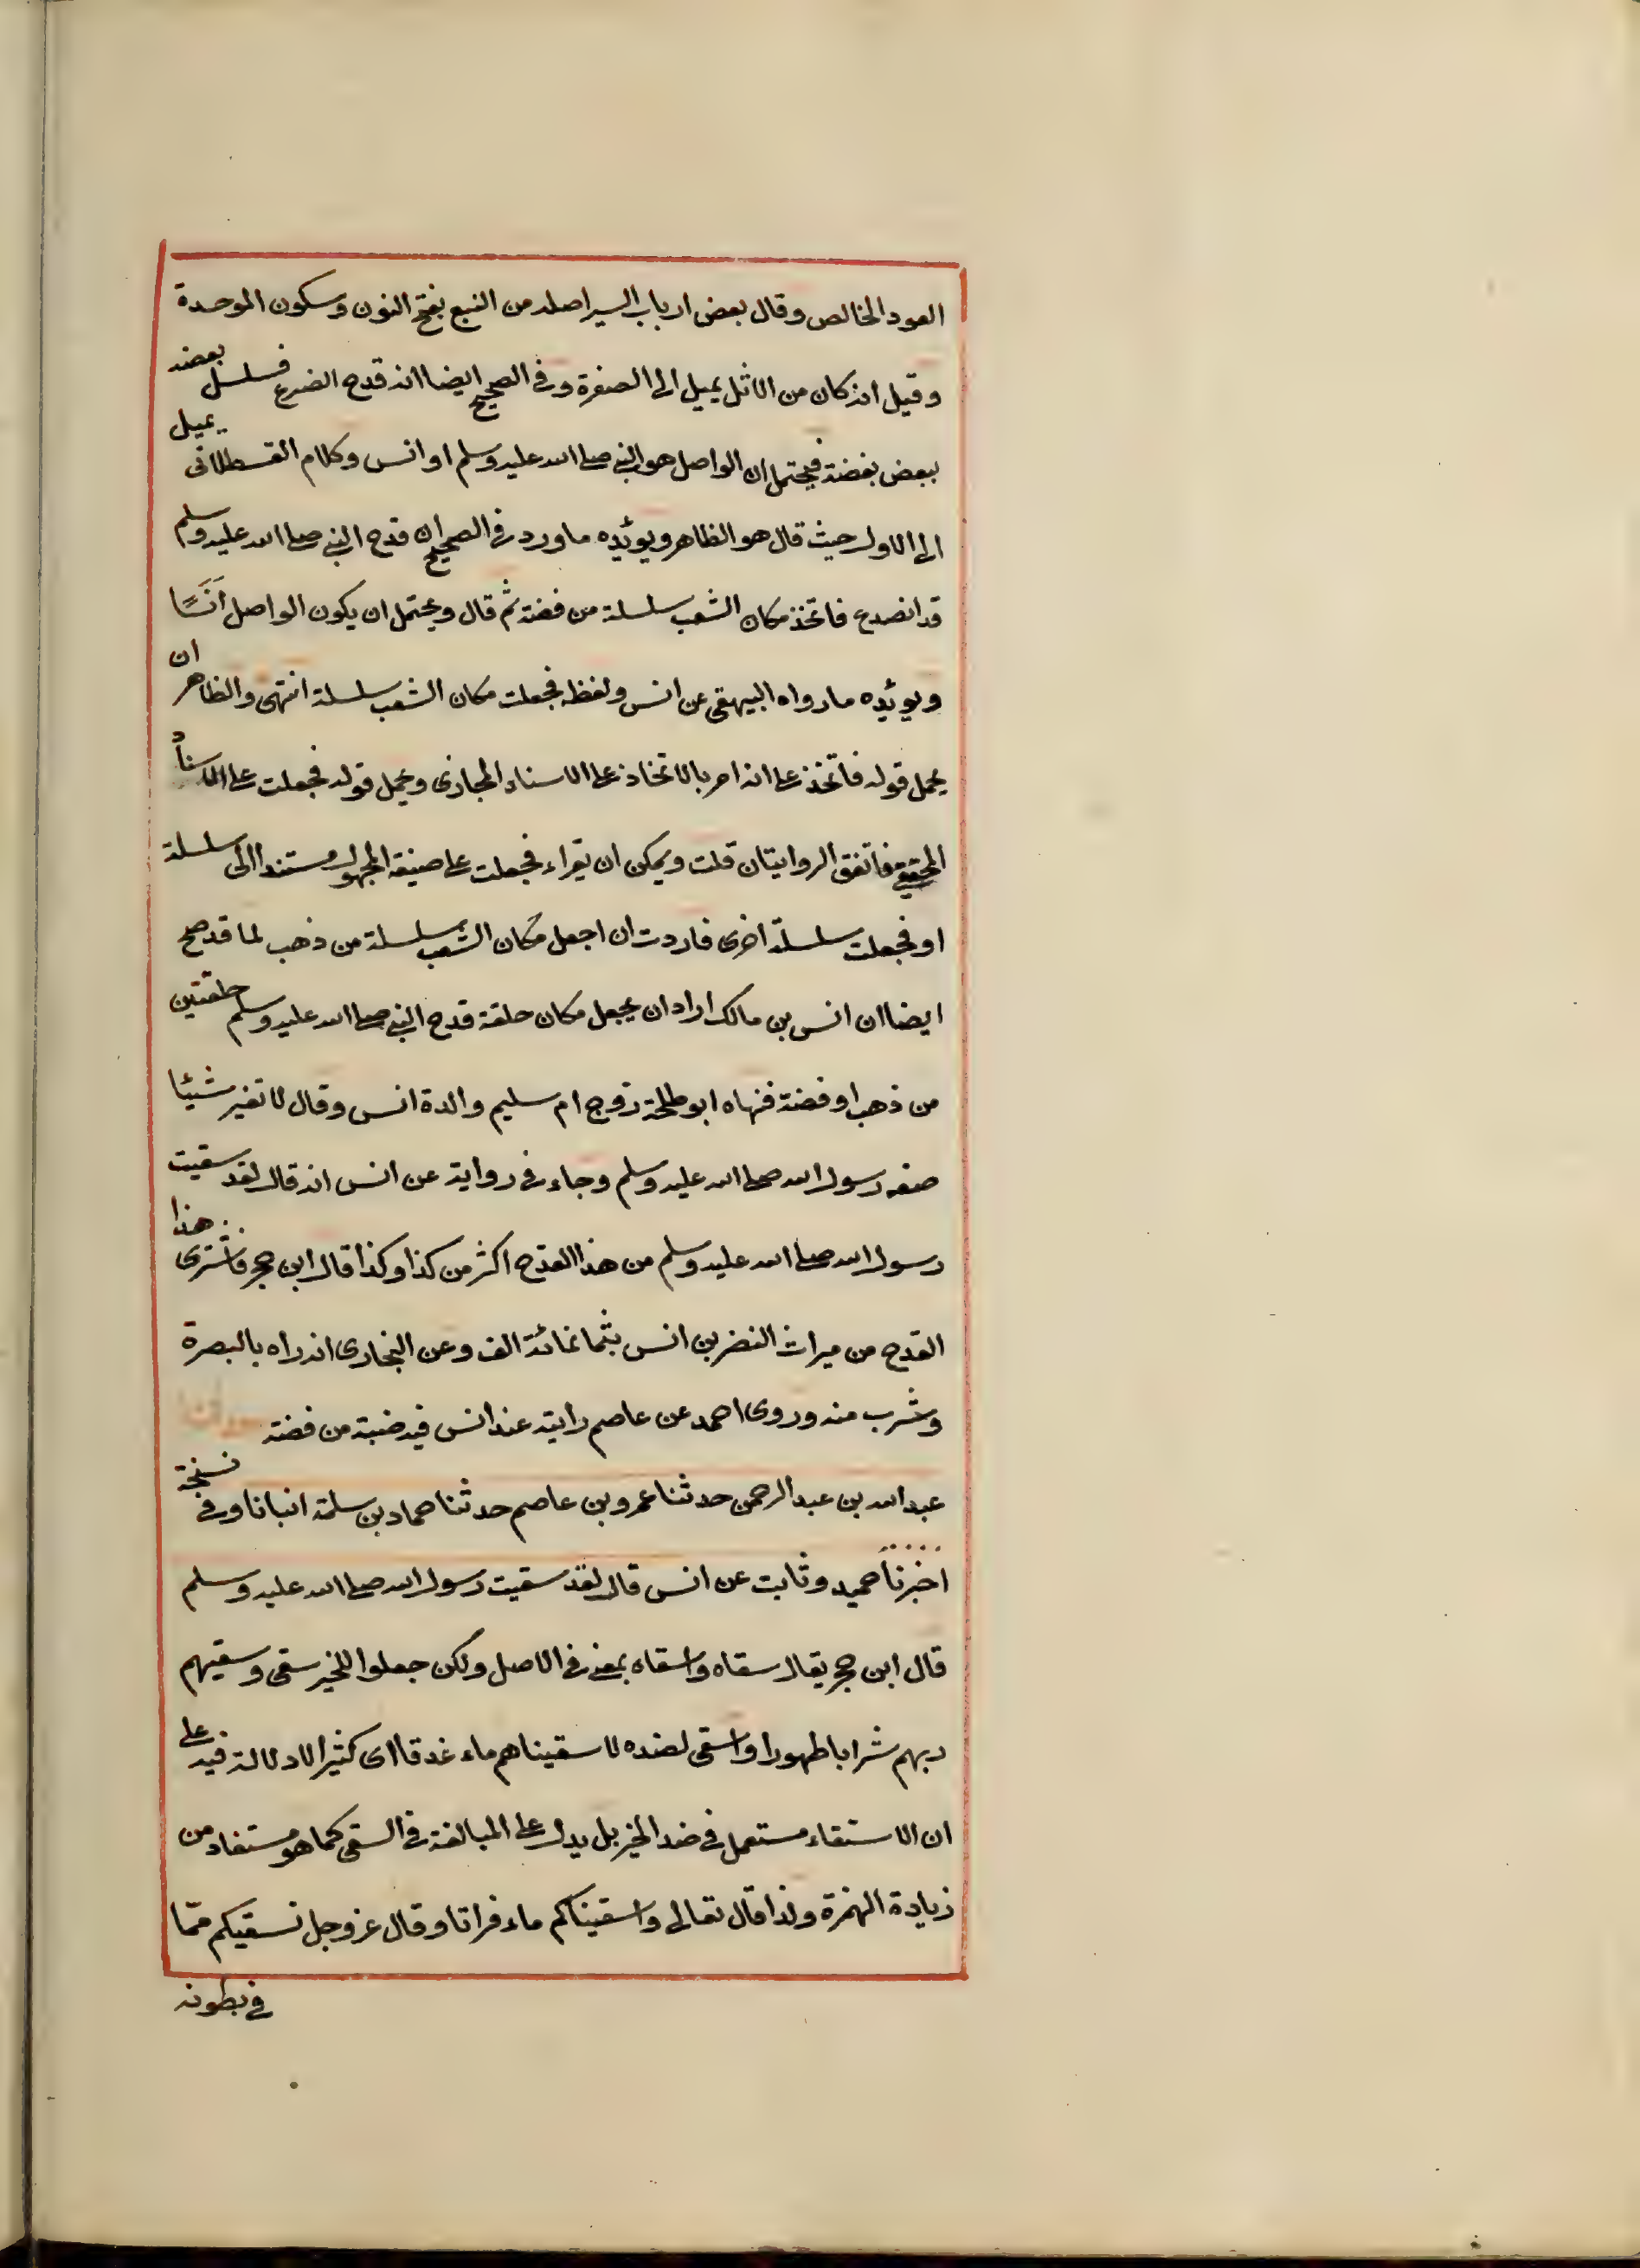 العود الخالص وقال بعض ارباب السير اصله من النبع بفتح النون وسكون الموحدة
وقيل انه كان من الاثل يميل الى الصفرة وفى الصحيح ايضا انه قدح انصدع فسلسل بعضه
ببعض بفضة فيحتمل ان الواصل هو النبى صلى الله عليه وسلم او انس وكلام القسطلانى يميل
الى الاول حيث قال هو الظاهر ويؤيده ما ورد فى الصحيح ان قدح النبى صلى الله عليه وسلم
قد انصدع فاتخذ مكان الشعب سلسلة من فضة ثم قال ويحتمل ان يكون الواصل أنَسًا
ويؤيده ما رواه البيهقى عن انس ولفظه فجعلت مكان الشعب سلسلة انتهى والظاهر ان
يحمل قوله فاتخذ على انه امر بالاتخاذ على الاسناد المجازى ويحمل قوله فجعلت على الاسناد
الحقيقى فاتفق الروايتان قلت ويمكن ان يقراء فجعلت على صيغة المجهول مستندا الى سلسلة
او فجعلت سلسلة اخرى فاردت ان اجعل مكان الشعب سلسلة من ذهب لما قد صح
ايضا ان انس بن مالك اراد ان يجعل مكان حلقة قدح النبى صلى الله عليه وسلم حلقتين
من ذهب او فضة فنهاه ابو طلحة زوج ام سليم والدة انس وقال لا تغير شيئا
صنعه رسول الله صلى الله عليه وسلم وجاء فى رواية عن انس انه قال لقد سقيت
رسول الله صلى الله عليه وسلم من هذا القدح اكثر من كذا وكذا قال ابن حجر فاشترى هذا
القدح من ميراث النضر بن انس بثمانمائة الف وعن البخارى انه راه بالبصرة
وشرب منه وروى احمد عن عاصم رايته عند انس فيه ضبة من فضة
عبد الله بن عبد الرحمن حدثنا عمرو بن عاصم حدثنا حماد بن سلمة انبانا وفى نسخة
اخبرنا حميد وثابت عن انس قال لقد سقيت رسول الله صلى الله عليه وسلم
قال ابن حجر يقال سقاه واسقاه بمعنى فى الاصل ولكن جعلوا للخير سقى وسقيهم
ربهم شرابا طهورا واسقى لضده لاسقيناهم ماء غدقا اى كثيرا لا دلالة فيه على
ان الاستقاء مستعمل فى ضد الخير بل يدل على المبالغة فى السقى كما هو مستفاد من
زيادة الهمزة ولذا قال تعالى واسقيناكم ماء فراتا وقال عز وجل نسقيكم ممّا
فى بطونه